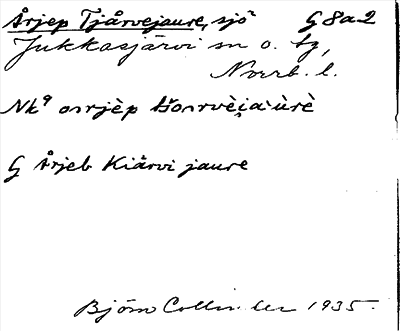 Årjep Tjårvejaure, sjö G 8a2
Jukkasjärvi sn o. tg,
Norrb. l.
Nk⁹ oarjèp
G Årjeb Kiårvi jaure
Björn Collinder 1935.